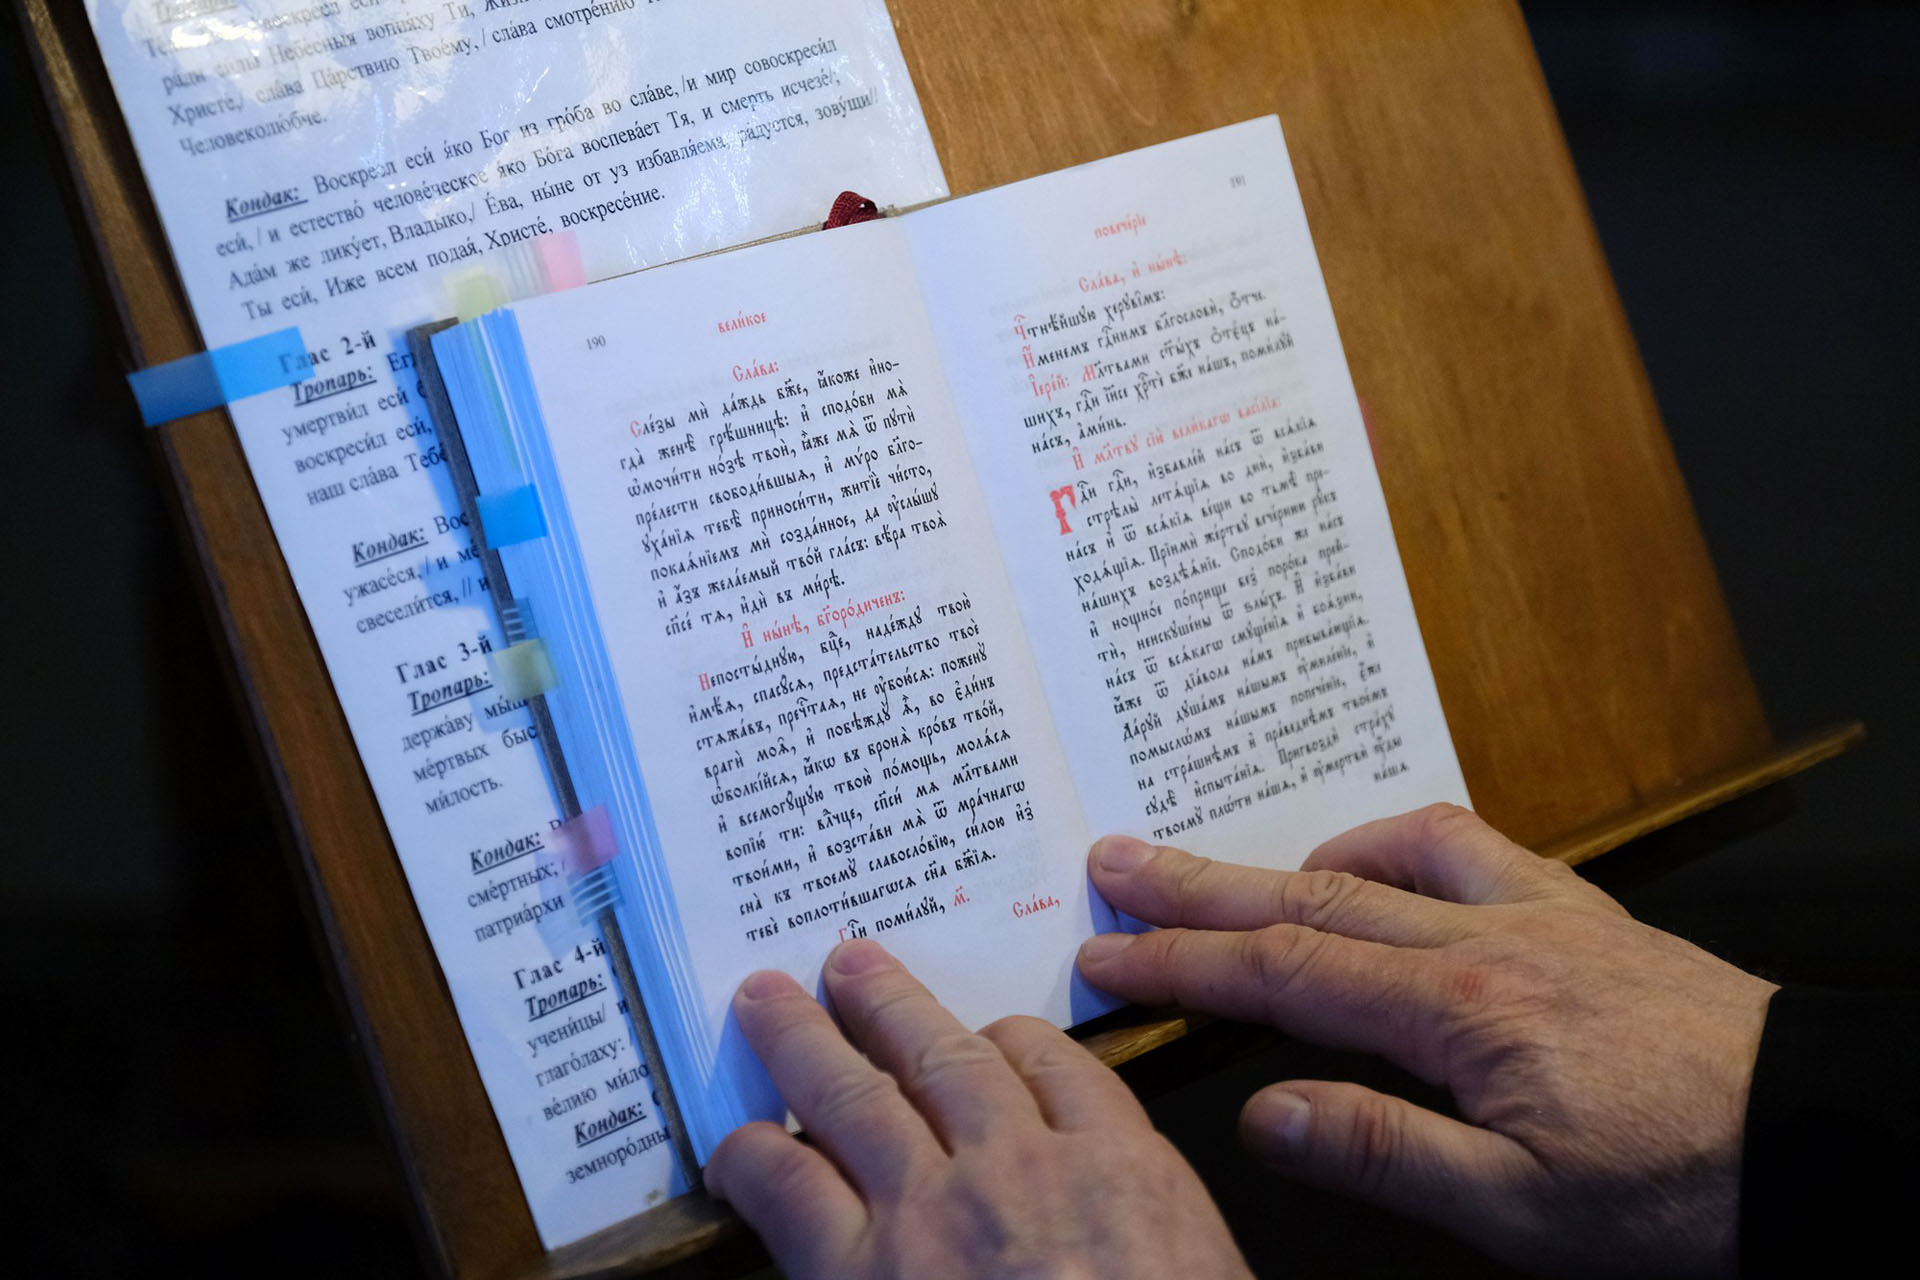 Тропарь:
ради силы Небе́сныя вопия́ху Ти,
Христе́,/ сла́ва Ца́рствию Твоему́, / сла́ва смотре́нию
Человеколю́бче.
Кондак: Воскре́сл еси́ я́ко Бог из гро́ба во сла́ве, /и мир совоскреси́л
еси́, / и естество́ челове́ческое я́ко Бо́га воспева́ет Тя, и смерть исчезе́/;
Ада́м же лику́ет, Влады́ко,/ Е́ва, ны́не от уз избавля́ема, ра́дуется, зову́щи//
Ты еси́, И́же всем подая́, Христе́, воскресе́ние.
Глас 2-й
Тропарь:
умертви́л еси́
воскреси́л еси́,
наш сла́ва Тебе́
Кондак: Вос
ужасе́ся, / и ме
свесели́тся, // и
Глас 3-й
Тропарь:
держа́ву мы́ш
ме́ртвых быс
ми́лость.
Кондак:
сме́ртных; /
патриа́рхи
Глас 4-й
Тропарь:
учени́цы/ и
глаго́лаху: /
ве́лию ми́ло
Кондак:
земноро́дны
190
вели́кое
Сла́ва:
Сле́зы мѝ да́ждь бж҃е, ꙗ҆́коже и҆но-
гда̀ женѣ̀ грѣ́шницѣ: и҆ сподо́би мѧ̀
ѡ҆мочи́ти но́зѣ твоѝ, ꙗ҆̀же мѧ̀ ѿ пꙋтѝ
пре́лести свободи́вшыѧ, и҆ мѵ́ро бл҃го-
ꙋха́нїѧ тебѣ̀ приноси́ти, житїѐ чи́сто,
покаѧ́нїемъ мѝ созда́нное, да ᲂу҆слы́шꙋ
и҆ а҆́зъ жела́емый тво́й гла́съ: вѣ́ра твоѧ̀
сп҃се́ тѧ, и҆дѝ въ ми́рѣ.
И҆ ны́нѣ, бг҃оро́диченъ:
Непосты́днꙋю, бц҃е, наде́ждꙋ твою̀
и҆мѣ́ѧ, спасꙋ́сѧ, предста́тельство твоѐ
стѧжа́въ, пречⷭ҇таѧ, не ᲂу҆бою́сѧ: поженꙋ̀
врагѝ моѧ̑, и҆ побѣждꙋ̀ ѧ҆̀, во є҆ди́нъ
ѡ҆болкі́йсѧ, ꙗ҆́кѡ въ бронѧ̀ кро́въ тво́й,
и҆ всемогꙋ́щꙋю твою̀ по́мощь, молѧ́сѧ
вопїю́ ти: влⷣчце, сп҃сѝ мѧ мл҃твами
твои́ми, и҆ возста́ви мѧ̀ ѿ мра́чнагѡ
сна̀ къ твоемꙋ̀ славосло́вїю, си́лою и҆з̾
тебѐ воплоти́вшагѡсѧ сн҃а бж҃їѧ.
Гдⷭ҇и поми́лꙋй, м҃. Сла́ва,
191
повече́рїе
Сла́ва, и҆ ны́нѣ:
Чⷭ҇тнѣ́йшꙋю херꙋві̑мъ:
И҆́менемъ гдⷭ҇нимъ благословѝ, ѻ҆́тче.
І҆ере́й: Мл҃твами ст҃ы́хъ ѻ҆тє́цъ на́-
шихъ, гдⷭ҇и і҆и҃се хрⷭ҇тѐ бж҃е на́шъ, поми́лꙋй
на́съ, а҆ми́нь.
И҆ мл҃твꙋ сїю̀ вели́кагѡ васі́лїа:
Гдⷭ҇и гдⷭ҇и, и҆збавле́й на́съ ѿ всѧ́кїѧ
стрѣлы̀ летѧ́щїѧ во днѝ, и҆зба́ви
на́съ и҆ ѿ всѧ́кїѧ ве́щи во тьмѣ̀ пре-
ходѧ́щїѧ. Прїимѝ же́ртвꙋ вече́рнюю рꙋ́къ
на́шихъ воздѣѧ́нїе. Сподо́би же на́съ
и҆ нощно́е по́прище без̾ поро́ка прей-
тѝ, неискꙋшє́ны ѿ ѕлы́хъ. И҆ и҆зба́ви
на́съ ѿ всѧ́кагѡ смꙋще́нїѧ и҆ боѧ́зни,
ꙗ҆́же ѿ дїа́вола на́мъ прибыва́ющїѧ.
Да́рꙋй дꙋша́мъ на́шымъ ᲂу҆миле́нїе, и҆
помыслѡ́мъ на́шымъ попече́нїе, є҆́же
на стра́шнѣмъ и҆ пра́веднѣмъ твое́мъ
сꙋдѣ̀ и҆спыта́нїѧ. Пригвоздѝ стра́хꙋ
твоемꙋ̀ плѡ́ти на́шѧ, и҆ ᲂу҆мертвѝ ᲂу҆́ды
на́шѧ